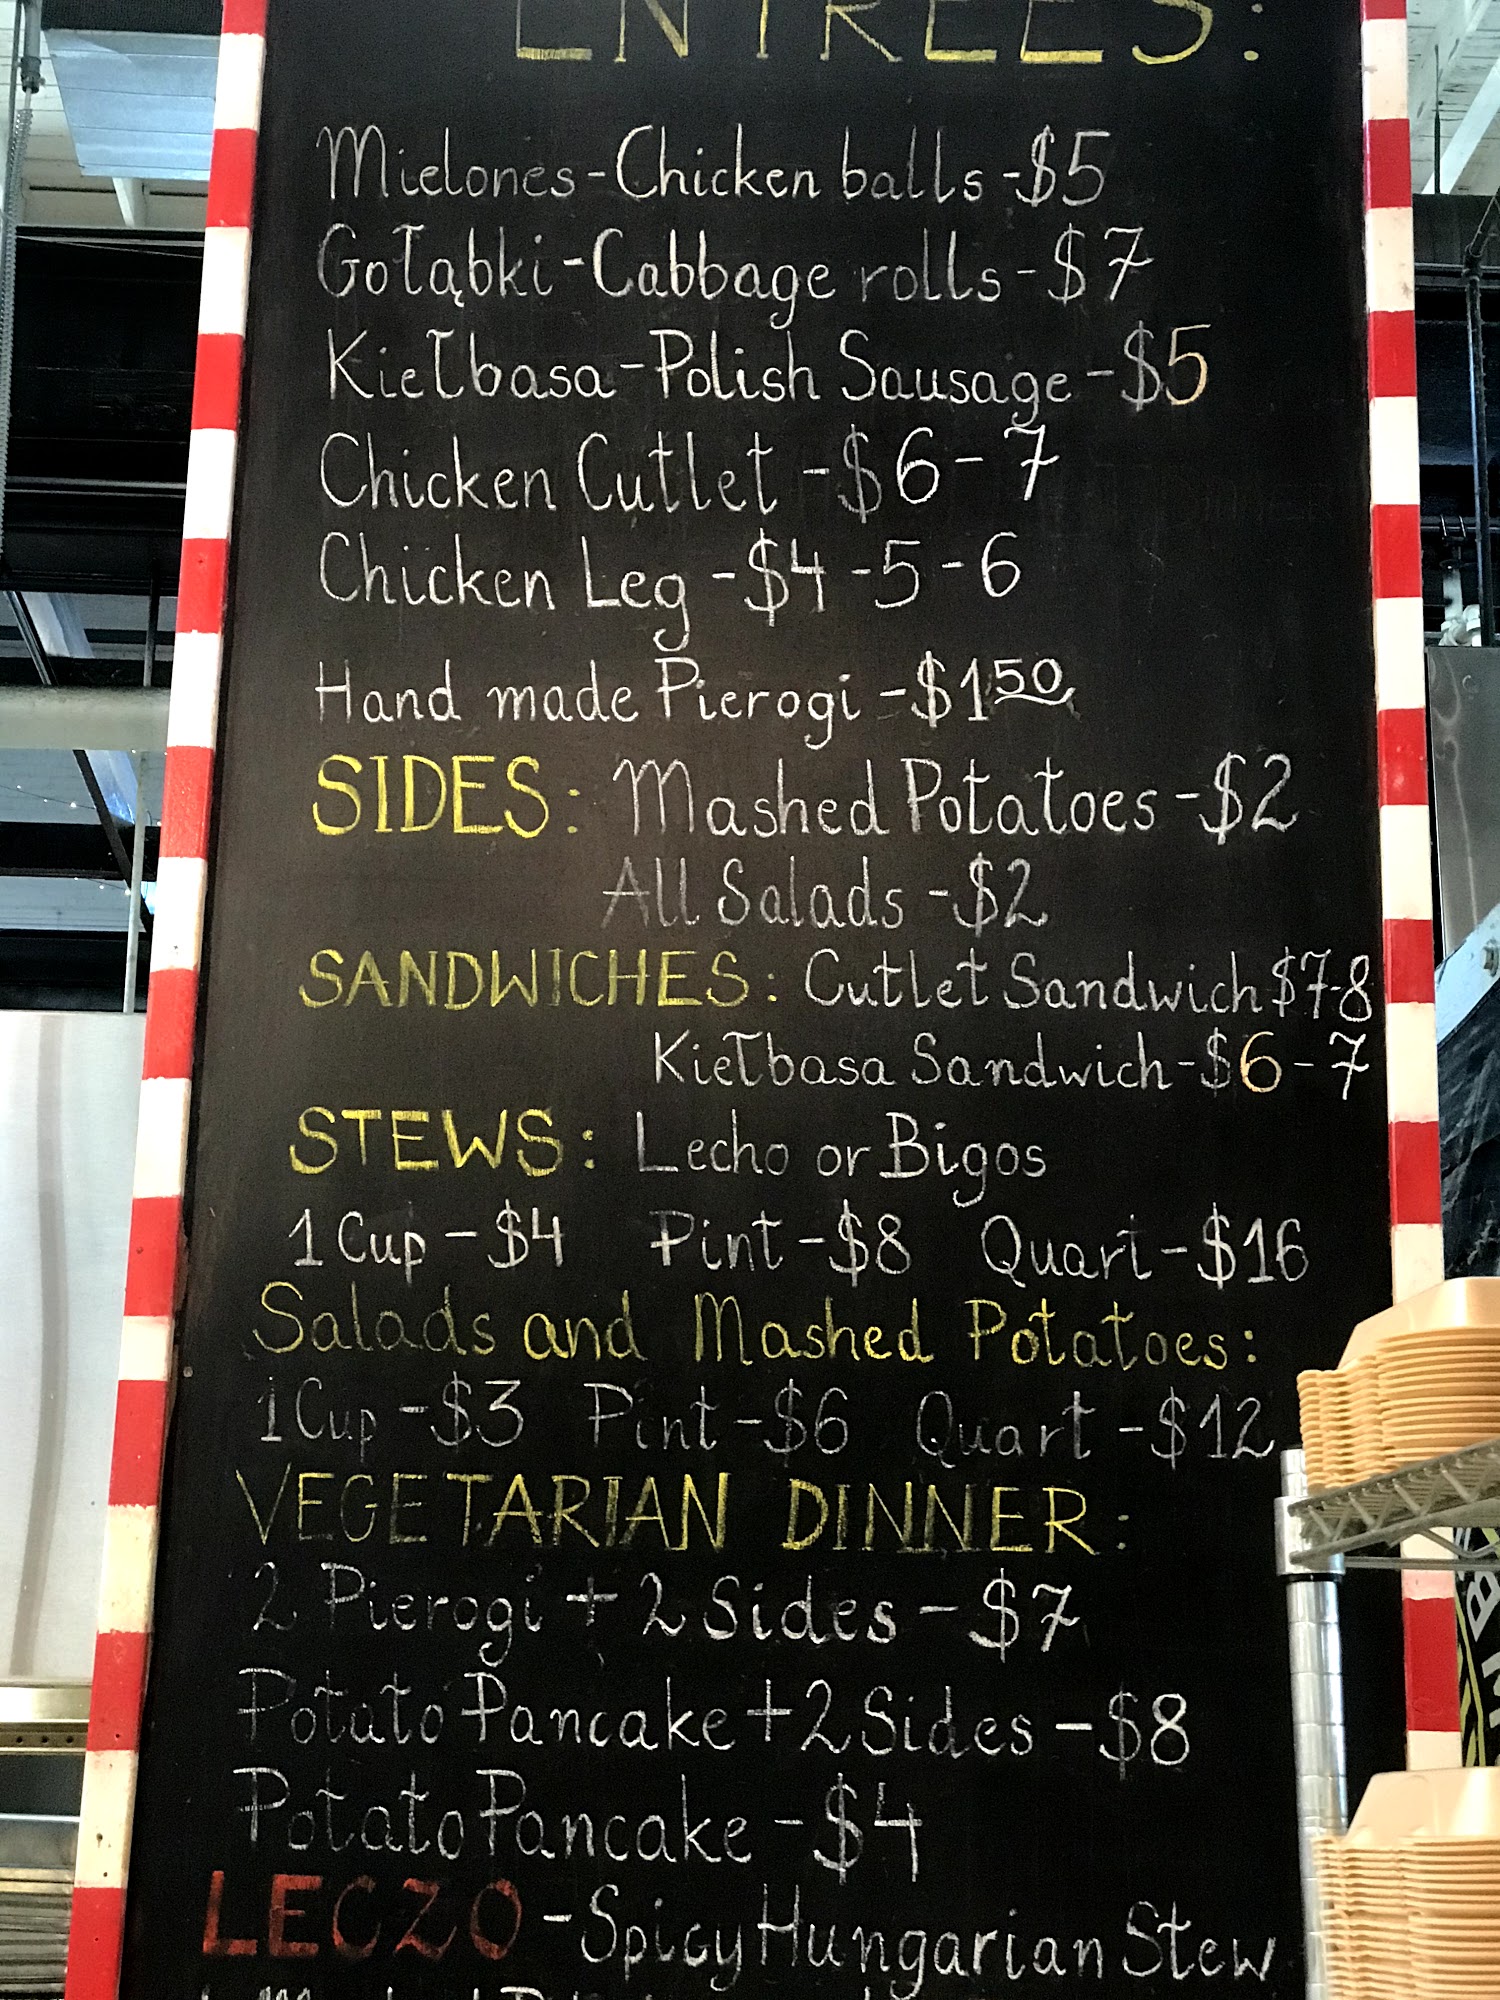 ENTREES:
Mielones-Chicken balls-$5
Gołąbki-Cabbage rolls-$7
Kiełbasa-Polish Sausage-$5
Chicken Cutlet-$6-7
Chicken Leg-$4-5-6
Hand made Pierogi-$1 50
SIDES: Mashed Potatoes-$2
All Salads-$2
SANDWICHES: Cutlet Sandwich $7-8
Kiełbasa Sandwich-$6-7
STEWS: Lecho or Bigos
1 Cup-$4 Pint-$8 Quart-$16
Salads and Mashed Potatoes:
1 Cup-$3 Pint-$6 Quart-$12
VEGETARIAN DINNER:
2 Pierogi + 2 Sides-$7
Potato Pancake + 2 Sides-$8
Potato Pancake-$4
LECZO-Spicy Hungarian Stew